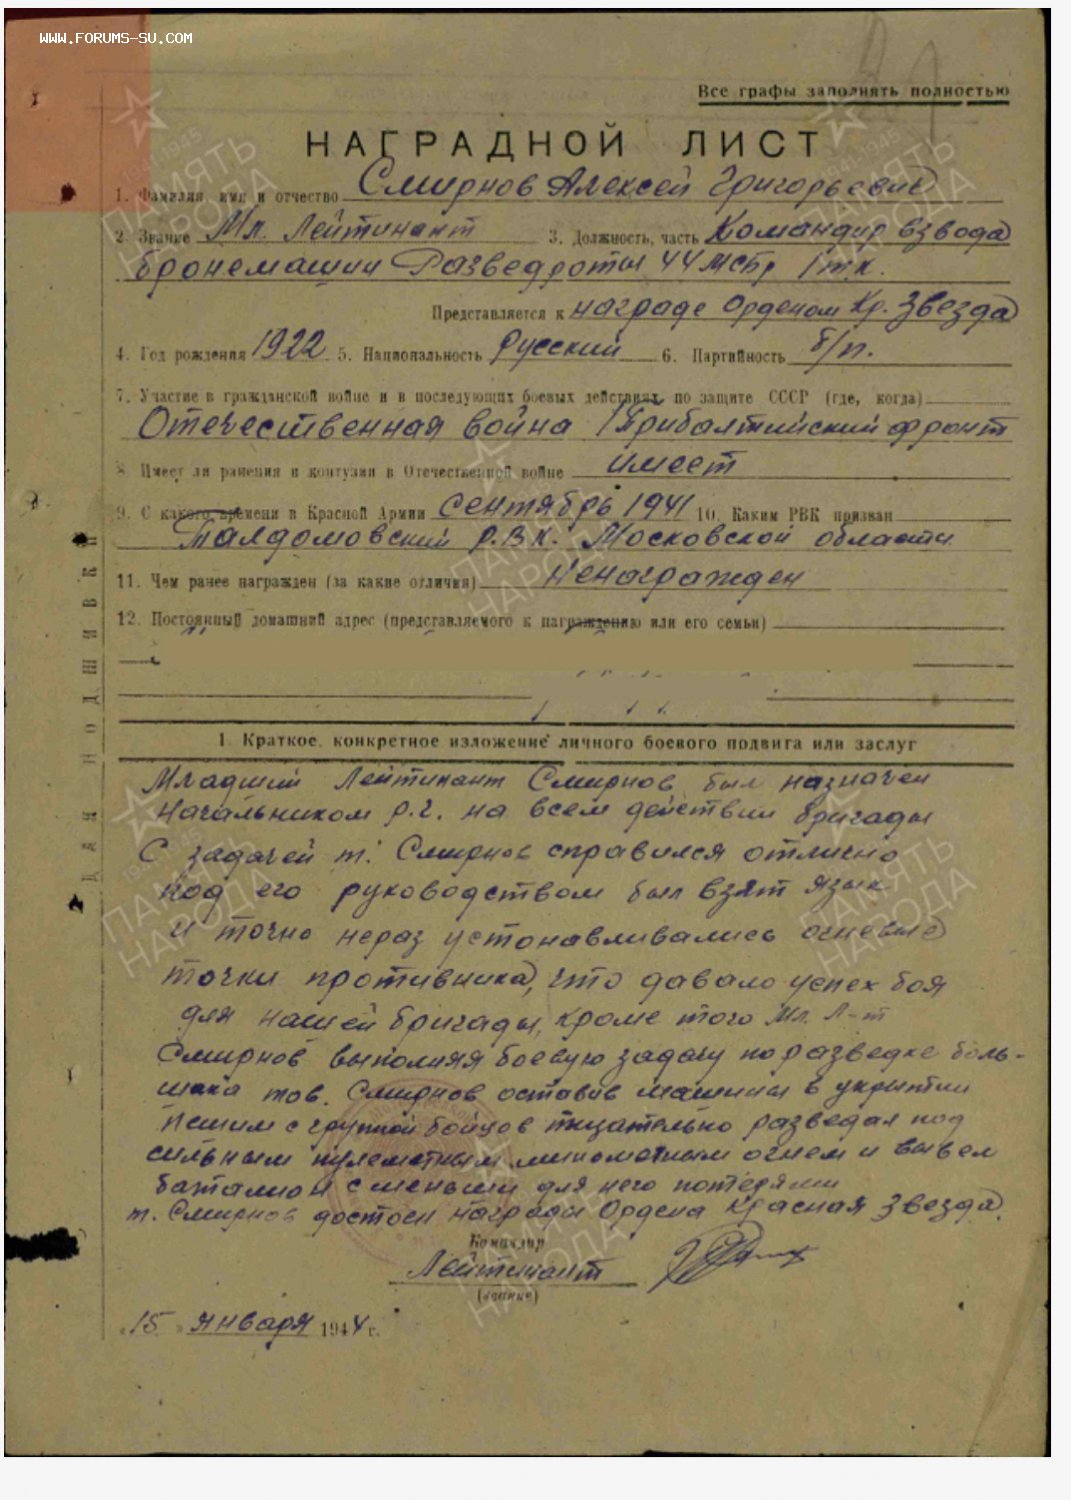 WWW.FORUMS-SU.COM
Все графы заполнять полностью
НАГРАДНОЙ ЛИСТ
1. Фамилия, имя и отчество Смирнов Алексей Григорьевич
2. Звание Мл. Лейтинант 3. Должность, часть Командир взвода
бронемашин Разведроты 44 мсбр 1 тк.
Представляется к награде Орденом Кр. Звезда
4. Год рождения 1922 5. Национальность Русский 6. Партийность б/п.
7. Участие в гражданской войне и в последующих боевых действиях по защите СССР (где, когда)
Отечественная война 1 Прибалтийский фронт
8. Имеет ли ранения и контузии в Отечественной войне имеет
9. С какого времени в Красной Армии Сентябрь 1941 10. Каким РВК призван
Талдомовский Р.В.К. Московской области
11. Чем ранее награжден (за какие отличия) Ненагражден
12. Постоянный домашний адрес (представляемого к награждению или его семьи)
1. Краткое, конкретное изложение личного боевого подвига или заслуг
Младший Лейтинант Смирнов был назначен
Начальником р.г. на всем действии бригады
С задачей т. Смирнов справился отлично
под его руководством был взят язык
и точно нераз устонавливались огневые
точки противника, что давало успех боя
для нашей бригады, кроме того Мл. Л-т
Смирнов выполняя боевую задачу по разведке боль-
шака тов. Смирнов оставив машины в укритии
пешим с группой бойцов тщательно разведал под
сильным пулеметным минометным огнем и вывел
баталион с меньши для него потерями
т. Смирнов достоен награды Ордена Красная Звезда.
Командир
Лейтинант
(звание)
"15" января 1944 г.
ДЛЯ ПОДШИВКИ
ПАМЯТЬ НАРОДА
1941-1945